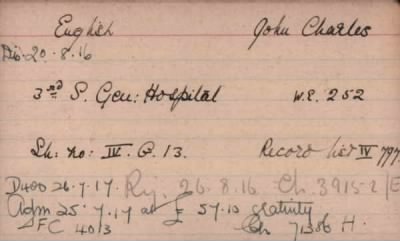 English John Charles
Dis. 20. 8. 16
3rd S. Gen: Hospital W.E. 252
Sh: no: IV. G. 13. Record list IV 797
D400 26.7.17. Rij. 26.8.16 Ch. 3915-2/E
Adm 25.7.17 at £ 57.10 gratuity
FC 40/3 Ch 71386 H.